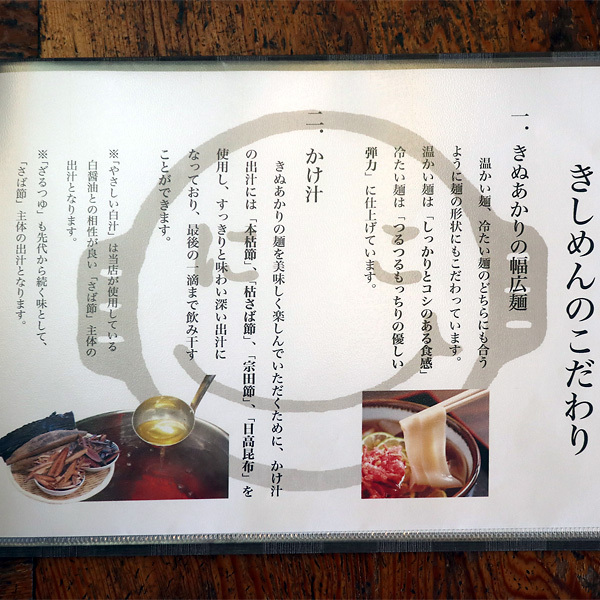 きしめんのこだわり
一．きぬあかりの幅広麺
温かい麺、冷たい麺のどちらにも合う
ように麺の形状にもこだわっています。
温かい麺は「しっかりとコシのある食感」
冷たい麺は「つるつるもっちりの優しい
弾力」に仕上げています。
二．かけ汁
きぬあかりの麺を美味しく楽しんでいただくために、かけ汁
の出汁には「本枯節」、「枯さば節」、「宗田節」、「日高昆布」を
使用し、すっきりと味わい深い出汁に
なっており、最後の一滴まで飲み干す
ことができます。
※「やさしい白汁」は当店が使用している
白醤油との相性が良い「さば節」主体の
出汁となります。
※「ざるつゆ」も先代から続く味として、
「さば節」主体の出汁となります。